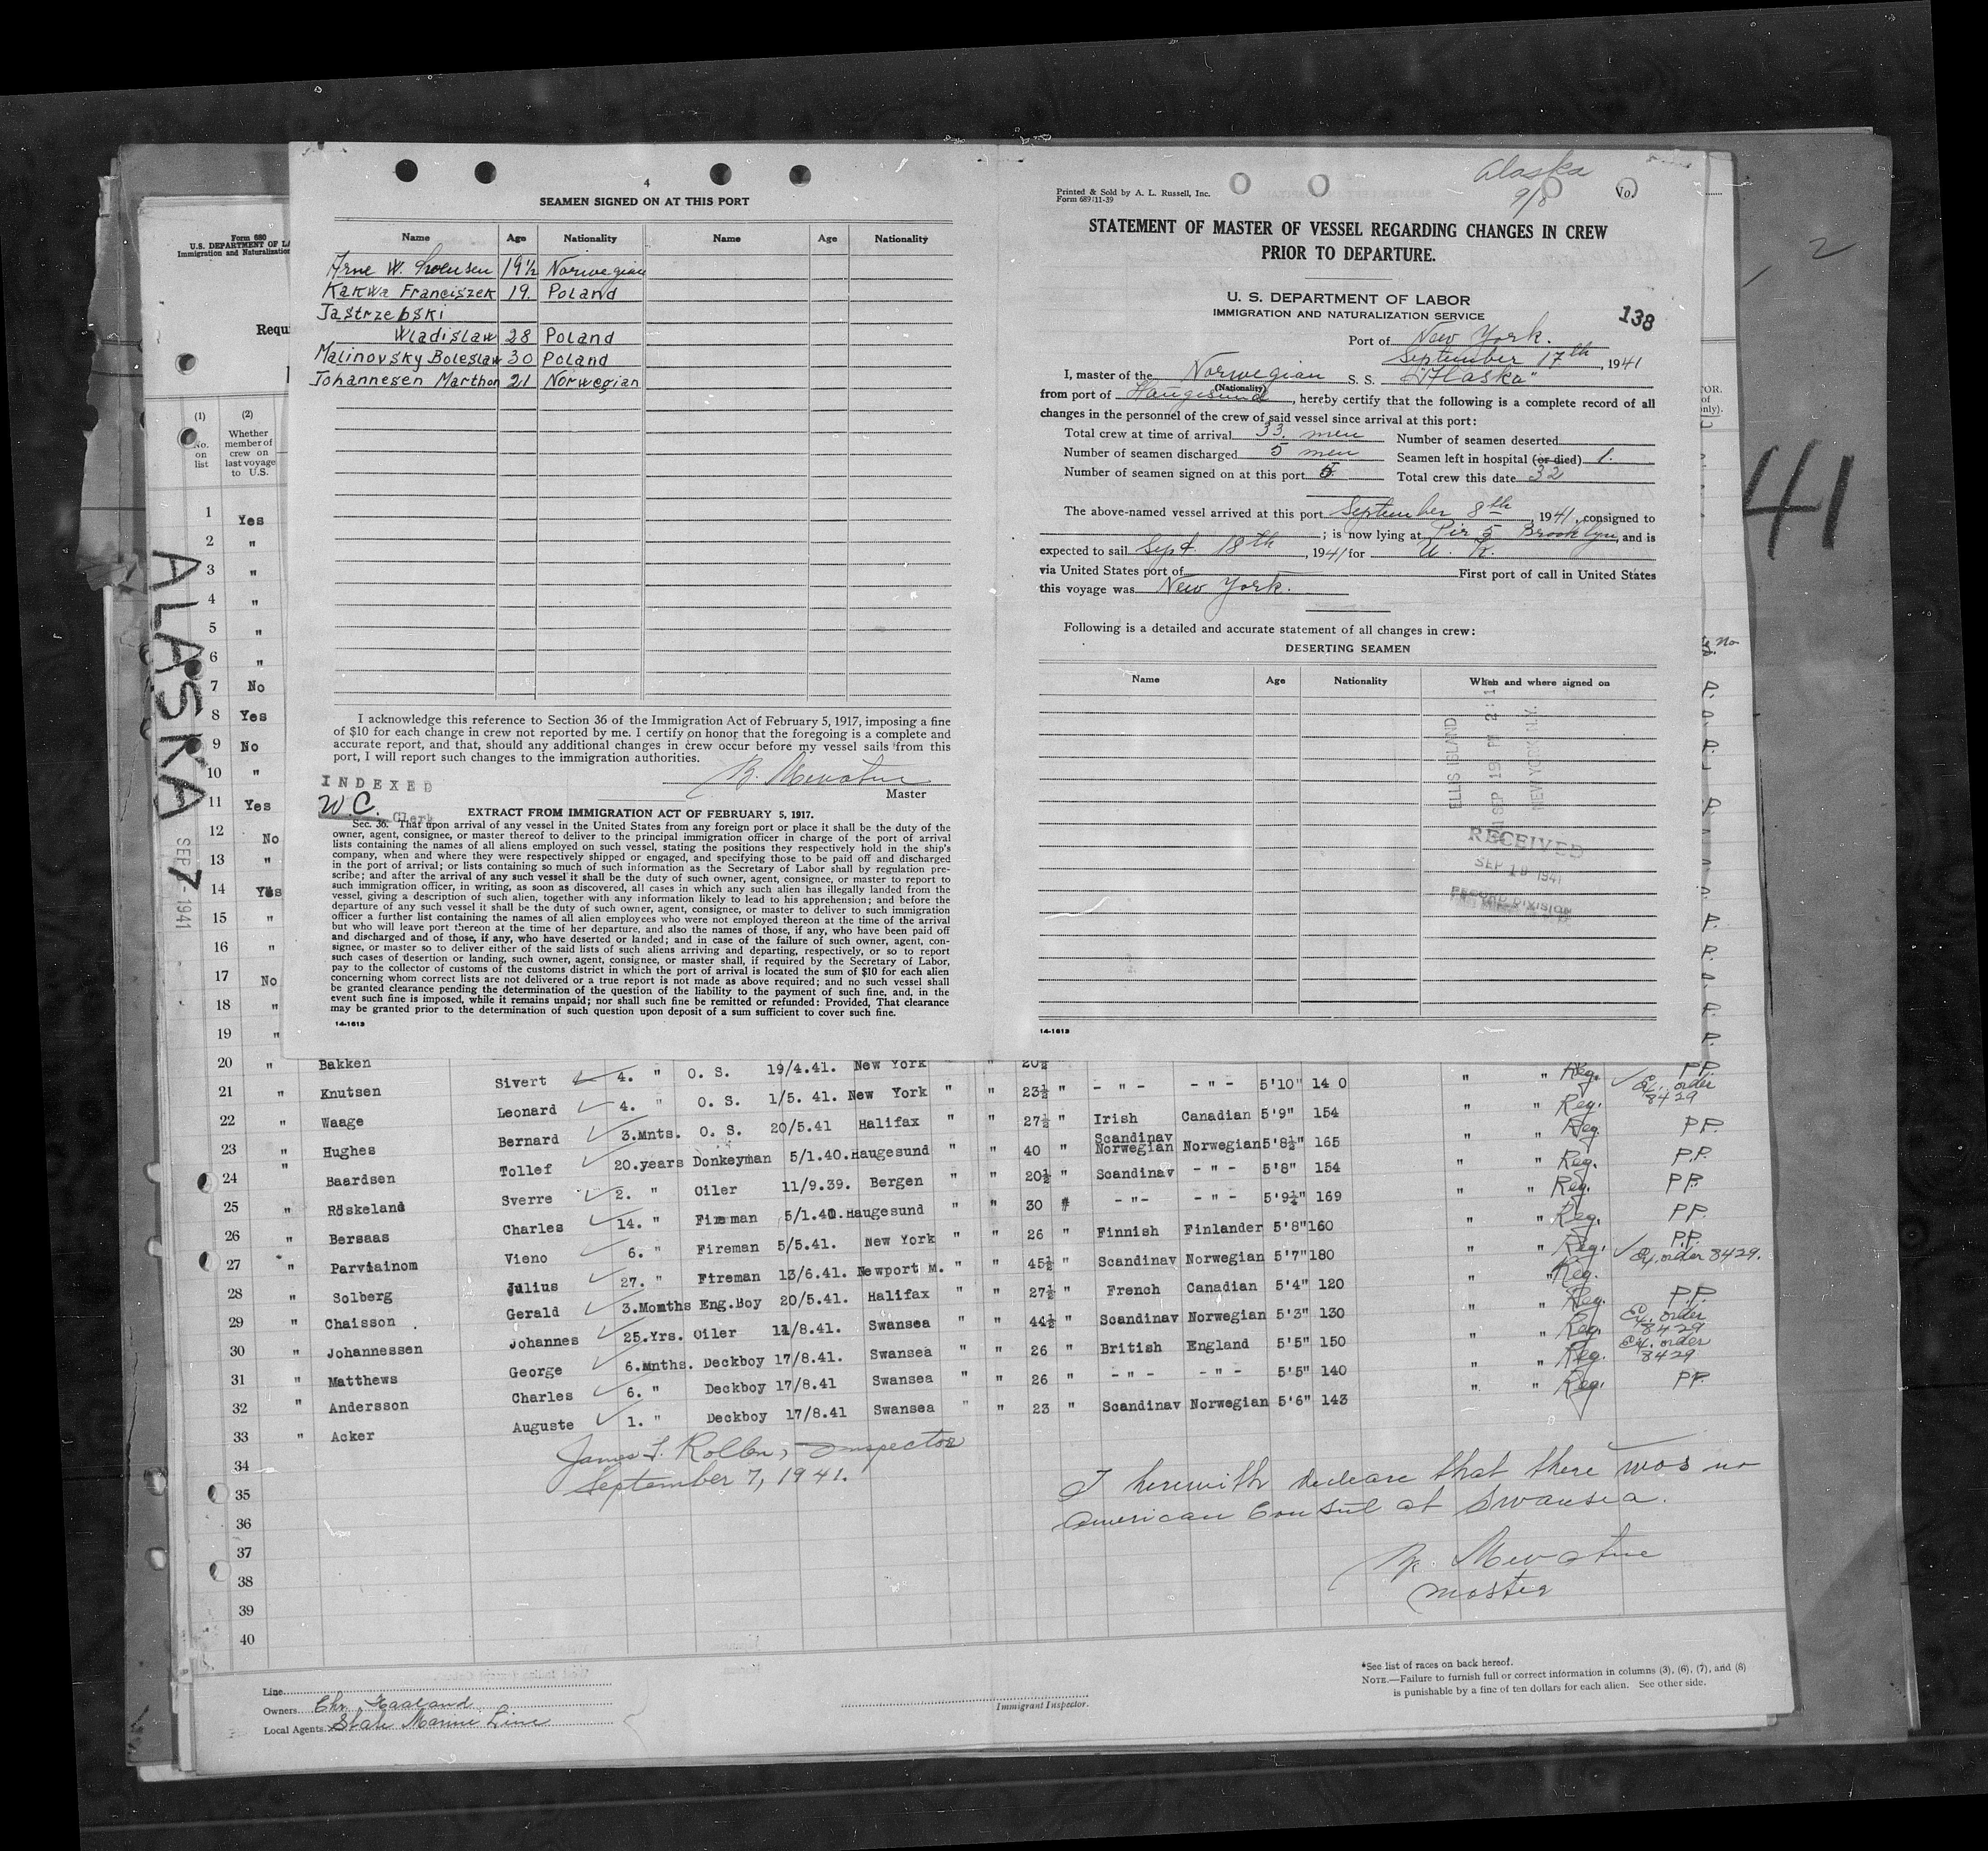 4
SEAMEN SIGNED ON AT THIS PORT
Name Age Nationality Name Age Nationality
Arne W. 19½ Norwegian
Kakwa Franciszek 19. Poland
Jastrzebski
Wladislaw 28 Poland
Malinovsky Boleslaw 30 Poland
Johannesen Marthon 21 Norwegian
I acknowledge this reference to Section 36 of the Immigration Act of February 5, 1917, imposing a fine
of $10 for each change in crew not reported by me. I certify on honor that the foregoing is a complete and
accurate report, and that, should any additional changes in crew occur before my vessel sails from this
port, I will report such changes to the immigration authorities.
Master
INDEXED
W.C. Clerk
EXTRACT FROM IMMIGRATION ACT OF FEBRUARY 5, 1917.
Sec. 36. That upon arrival of any vessel in the United States from any foreign port or place it shall be the duty of the
owner, agent, consignee, or master thereof to deliver to the principal immigration officer in charge of the port of arrival
lists containing the names of all aliens employed on such vessel, stating the positions they respectively hold in the ship's
company, when and where they were respectively shipped or engaged, and specifying those to be paid off and discharged
in the port of arrival; or lists containing so much of such information as the Secretary of Labor shall by regulation pre-
scribe; and after the arrival of any such vessel it shall be the duty of such owner, agent, consignee, or master to report to
such immigration officer, in writing, as soon as discovered, all cases in which any such alien has illegally landed from the
vessel, giving a description of such alien, together with any information likely to lead to his apprehension; and before the
departure of any such vessel it shall be the duty of such owner, agent, consignee, or master to deliver to such immigration
officer a further list containing the names of all alien employees who were not employed thereon at the time of the arrival
but who will leave port thereon at the time of her departure, and also the names of those, if any, who have been paid off
and discharged and of those, if any, who have deserted or landed; and in case of the failure of such owner, agent, con-
signee, or master so to deliver either of the said lists of such aliens arriving and departing, respectively, or so to report
such cases of desertion or landing, such owner, agent, consignee, or master shall, if required by the Secretary of Labor,
pay to the collector of customs of the customs district in which the port of arrival is located the sum of $10 for each alien
concerning whom correct lists are not delivered or a true report is not made as above required; and no such vessel shall
be granted clearance pending the determination of the question of the liability to the payment of such fine, and, in the
event such fine is imposed, while it remains unpaid; nor shall such fine be remitted or refunded: Provided, That clearance
may be granted prior to the determination of such question upon deposit of a sum sufficient to cover such fine.
14-1613
Alaska
9/8
No.
Printed & Sold by A. L. Russell, Inc.
Form 689:11-39
STATEMENT OF MASTER OF VESSEL REGARDING CHANGES IN CREW
PRIOR TO DEPARTURE.
U. S. DEPARTMENT OF LABOR
IMMIGRATION AND NATURALIZATION SERVICE
138
Port of New York.
September 17th, 1941
I, master of the Norwegian S. S. "Alaska"
(Nationality)
from port of Haugesund, hereby certify that the following is a complete record of all
changes in the personnel of the crew of said vessel since arrival at this port:
Total crew at time of arrival 33. men Number of seamen deserted
Number of seamen discharged 5 men Seamen left in hospital (or died) 1.
Number of seamen signed on at this port 5 Total crew this date 32
The above-named vessel arrived at this port September 8th, 1941, consigned to
; is now lying at Pir 5 Brooklyn, and is
expected to sail Sept 18th, 1941 for U. K.
via United States port of First port of call in United States
this voyage was New York.
Following is a detailed and accurate statement of all changes in crew:
DESERTING SEAMEN
Name Age Nationality When and where signed on
ELLIS ISLAND
SEP 19 PM 2:1
NEW YORK, N.Y.
RECEIVED
SEP 19 1941
RECORD DIVISION
14-1613
2
41
Form 680
U.S. DEPARTMENT OF LA
Immigration and Naturalization
Requi
(1) (2)
No. on list
Whether member of crew on last voyage to U.S.
ALASKA
SEP 7 1941
1 Yes
2 "
3 "
4 "
5 "
6 "
7 No
8 Yes
9 No
10 "
11 Yes
12 No
13 "
14 Yes
15 "
16 "
17 No
18 "
19 "
20 " Bakken Sivert 4. " O. S. 19/4.41. New York " " 20½
21 " Knutsen Leonard 4. " O. S. 1/5. 41. New York " " 23½ " - " - - " - 5'10" 14 0 " " Reg. PP.
22 " Waage Bernard 3.Mnts. O. S. 20/5.41 Halifax " " 27½ " Irish Canadian 5'9" 154 " " Reg. Ex. order 8429
23 " Hughes Tollef 20.years Donkeyman 5/1.40. Haugesund " " 40 " Scandinav Norwegian Norwegian 5'8½" 165 " " Reg. PP.
24 " Baardsen Sverre 2. " Oiler 11/9.39. Bergen " " 20½ " Scandinav - " - 5'8" 154 " " Reg. PP.
25 " Röskeland Charles 14. " Fireman 5/1.40. Haugesund " " 30 # - "- - " - 5'9¼" 169 " " Reg. PP.
26 " Bersaas Vieno 6. " Fireman 5/5.41. New York " " 26 " Finnish Finlander 5'8" 160 " " Reg. PP.
27 " Parviainom Julius 27. " Fireman 13/6.41. Newport M. " " 45½ " Scandinav Norwegian 5'7" 180 " " Reg. P.P.
28 " Solberg Gerald 3.Months Eng.Boy 20/5.41. Halifax " " 27½ " French Canadian 5'4" 120 " " Reg. Ex. order 8429.
29 " Chaisson Johannes 25.Yrs. Oiler 11/8.41. Swansea " " 44½ " Scandinav Norwegian 5'3" 130 " " Reg. PP.
30 " Johannessen George 6.Mnths. Deckboy 17/8.41. Swansea " " 26 " British England 5'5" 150 " " Reg. Ex. order 8429
31 " Matthews Charles 6. " Deckboy 17/8.41 Swansea " " 26 " - " - - " - 5'5" 140 " " Reg. Ex. order 8429
32 " Andersson Auguste 1. " Deckboy 17/8.41 Swansea " " 23 " Scandinav Norwegian 5'6" 143 " " Reg. PP.
33 " Acker
34
35
36
37
38
39
40
Inspector
September 7, 1941.
I herewith declare that there was no
American Consul at Swansea.
Master
Line
Owners Chr. Haaland
Local Agents State Marine Line
Immigrant Inspector.
*See list of races on back hereof.
NOTE.—Failure to furnish full or correct information in columns (3), (6), (7), and (8)
is punishable by a fine of ten dollars for each alien. See other side.